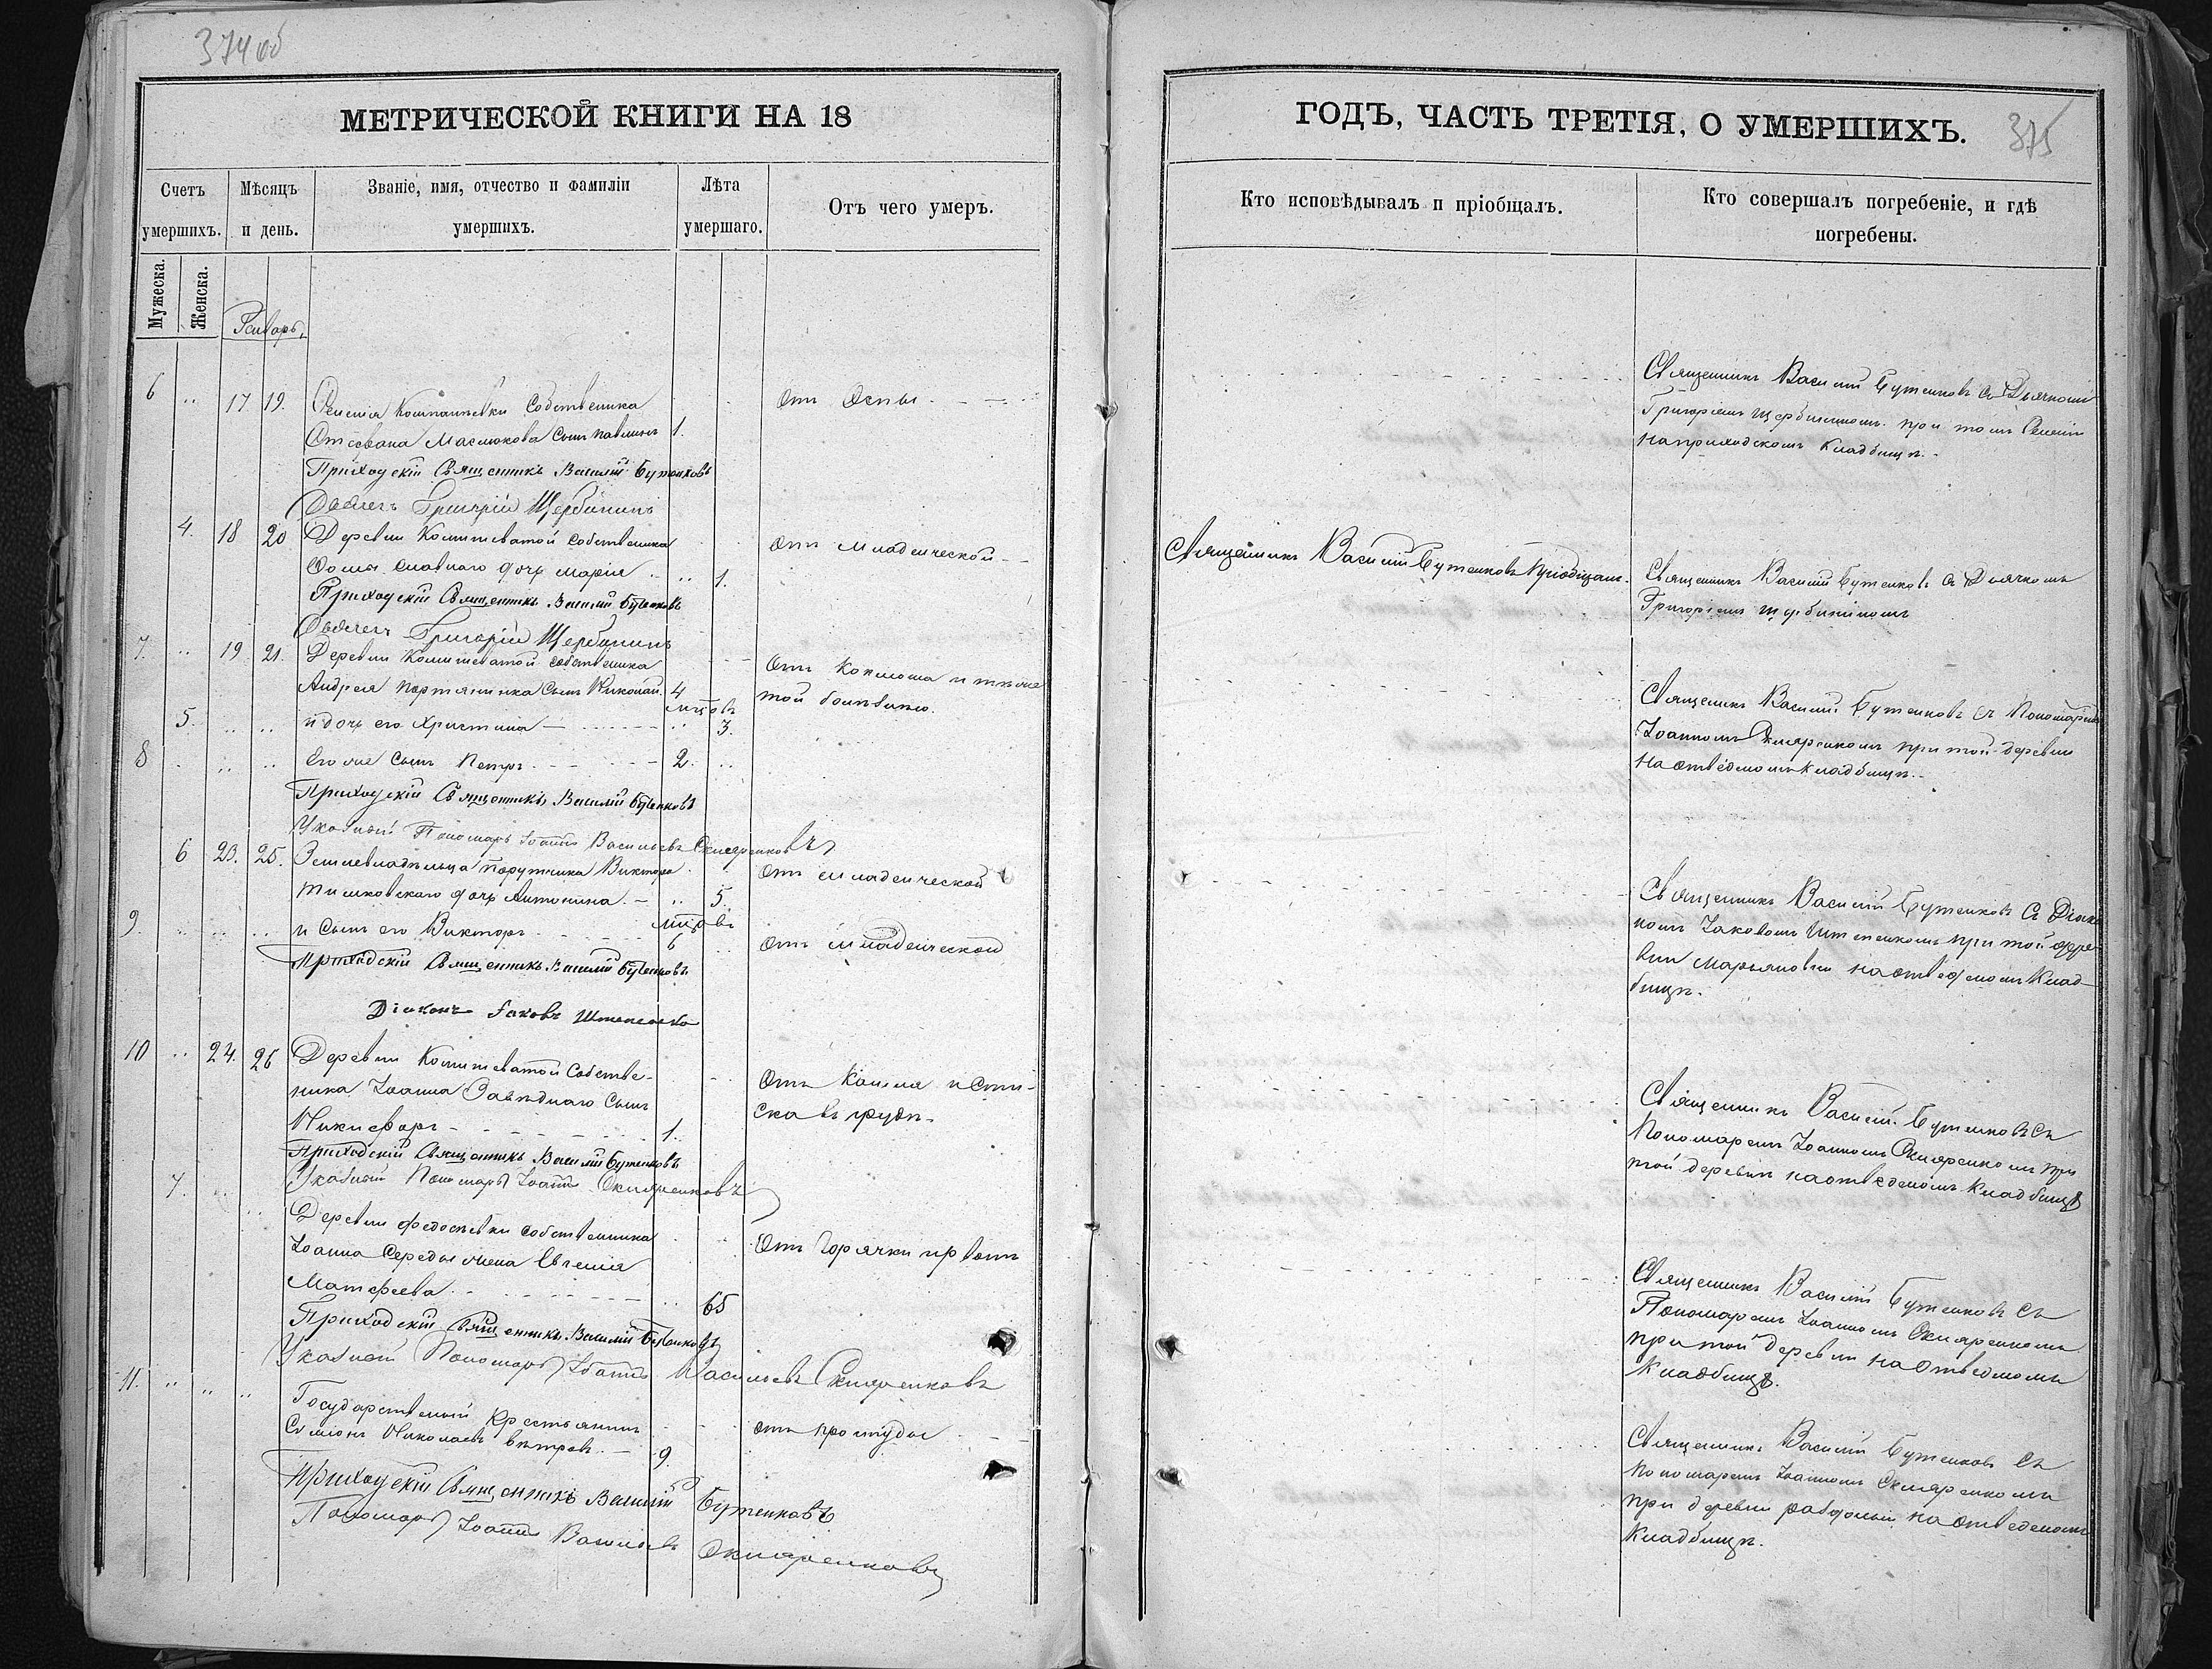 374 об
МЕТРИЧЕСКОЙ КНИГИ НА 18
Счетъ умершихъ.
Мѣсяцъ и день.
Званіе, имя, отчество и фамиліи умершихъ.
Лѣта умершаго.
Отъ чего умеръ.
Мужеска.
Женска.
Январь
6 " 17 19.
Собственика
Маслюкова сынъ 1.
Отъ Оспы
Приходскій Священникъ Василій Бутенковъ
Григорій Щербининъ
4. 18 20 Деревни Комишеватой собственика
дочь Марія " 1.
Отъ младенческой
Приходскій Священникъ Василій Бутенковъ
Григорій Щербининъ
7. " 19 21. Деревни Комишеватой собственика
Андрея сынъ Николай 4
мцовъ
Отъ
той
5. " " и дочь его Христина " 3.
8 " " его же сынъ Петръ 2. "
Приходскій Священникъ Василій Бутенковъ
Указный Пономарь Іоаннъ Васильевъ Скляренковъ
6 23. 25. Землевладѣльца Порутчика Виктора
дочь Антонина " 5.
Отъ младенческой
9 " " " и сынъ его Викторъ
мцовъ
6
Отъ младенческой
Приходскій Священникъ Василій Бутенковъ
Діаконъ Іаковъ Штепенко
10 " 24. 26 Деревни Комишеватой собстве-
ника Іоанна сынъ
Никифоръ 1.
Отъ кашля и сти-
ска въ груди
Приходскій Священникъ Василій Бутенковъ
Указный Пономарь Іоаннъ Скляренковъ
7. " " Деревни Федосѣевки собственника
Іоанна Середы жена Евгенія
Матфеева " 65
Отъ горячки
Приходскій Священникъ Василій Бутенковъ
Указный Пономарь Іоаннъ Васильевъ Скляренковъ
11. " " " Государственный крестьянинъ
Николаевъ Вѣтровъ 9.
Отъ простуды
Приходскій Священникъ Василій Бутенковъ
Пономарь Іоаннъ Васильевъ Скляренковъ
ГОДЪ, ЧАСТЬ ТРЕТІЯ, О УМЕРШИХЪ.
375
Кто исповѣдывалъ и пріобщалъ.
Кто совершалъ погребеніе, и гдѣ погребены.
Священникъ Василій Бутенковъ съ Дьячкомъ
Григоріемъ Щербининомъ при томъ
на приходскомъ кладбищѣ.
Священникъ Василій Бутенковъ Пріобщалъ.
Священникъ Василій Бутенковъ съ Дьячкомъ
Григоріемъ Щербининомъ
Священникъ Василій Бутенковъ съ Пономаремъ
Іоанномъ Скляренкомъ при той деревни
на отведеномъ кладбищѣ.
Священникъ Василій Бутенковъ съ Діако-
номъ Іаковомъ Штепенкомъ при той дере-
вни Марьяновки на отведеномъ клад-
бищѣ.
Священникъ Василій Бутенковъ съ
Пономаремъ Іоанномъ Скляренкомъ при
той деревни на отведеномъ кладбищѣ
Священникъ Василій Бутенковъ съ
Пономаремъ Іоанномъ Скляренкомъ
при той деревни на отведеномъ
кладбищѣ.
Священникъ Василій Бутенковъ съ
Пономаремъ Іоанномъ Скляренкомъ
при деревни на отведеномъ
кладбищѣ.